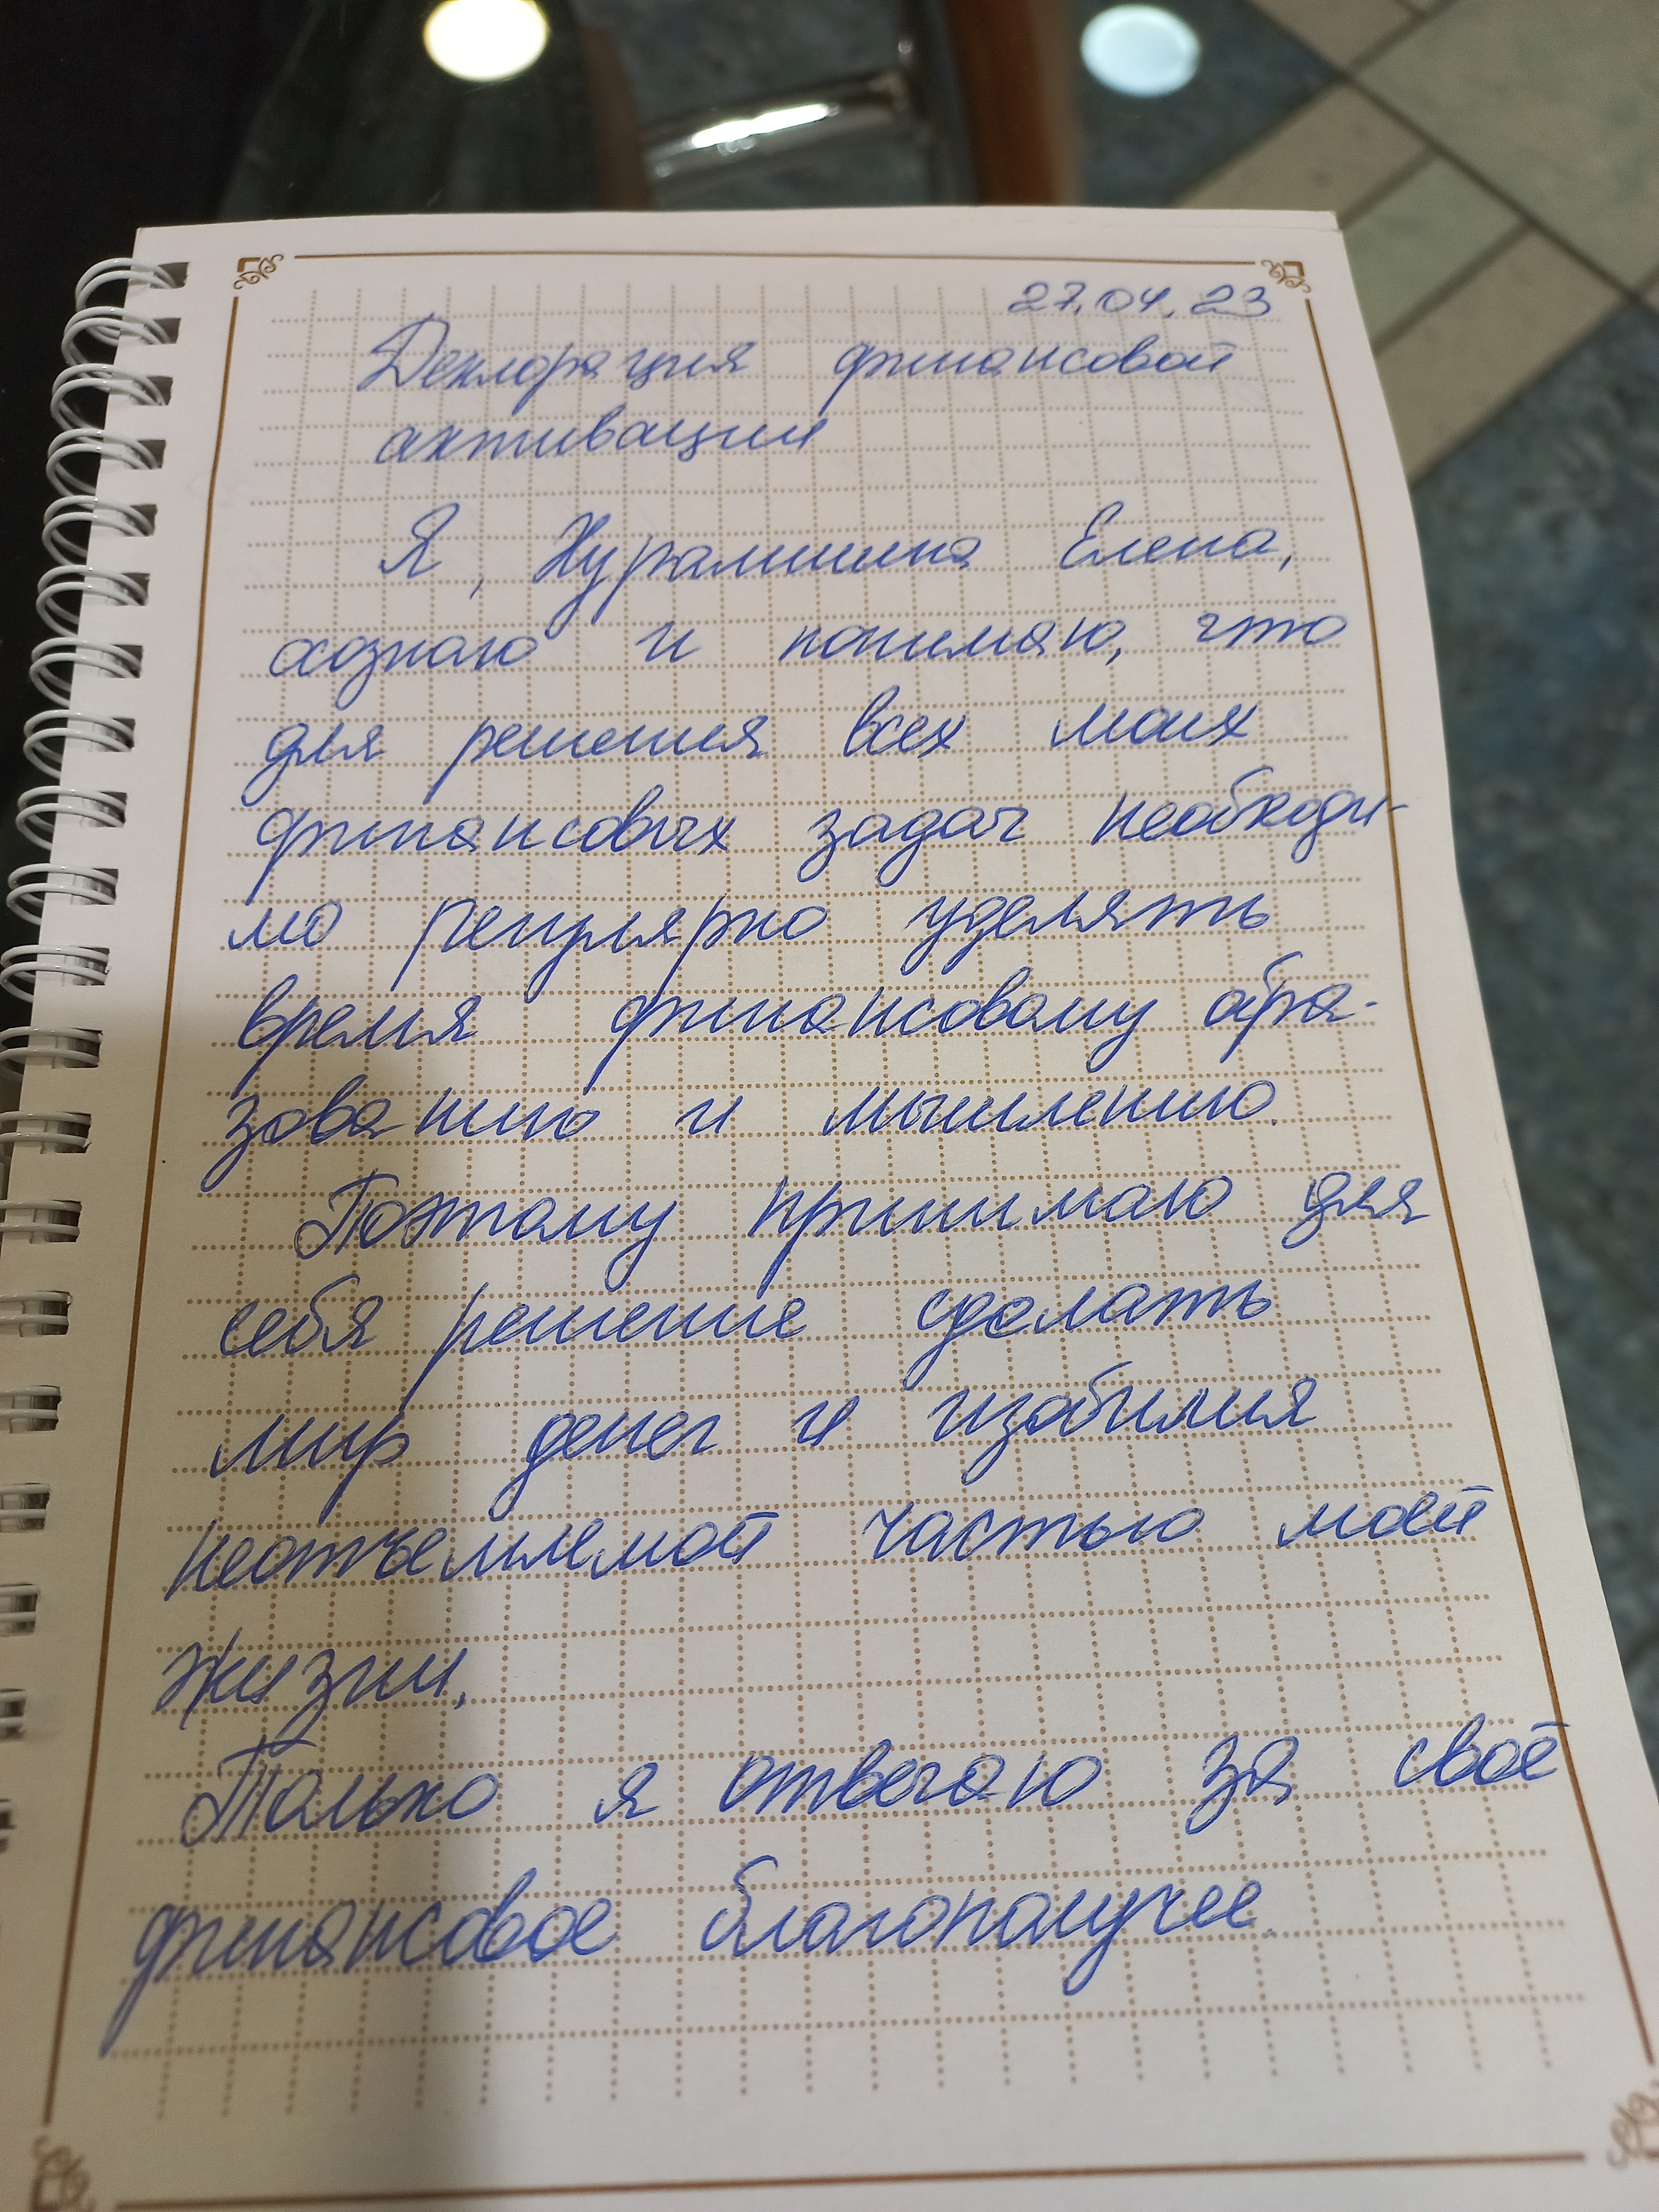 27.04.23
Декларация финансовой
активации
Я, Нуралишина Елена,
осознаю и понимаю, что
для решения всех моих
финансовых задач необходи-
мо регулярно уделять
время финансовому обра-
зованию и мышлению.
Поэтому принимаю для
себя решение сделать
мир денег и изобилия
неотъемлемой частью моей
жизни.
Только я отвечаю за своё
финансовое благополучее.